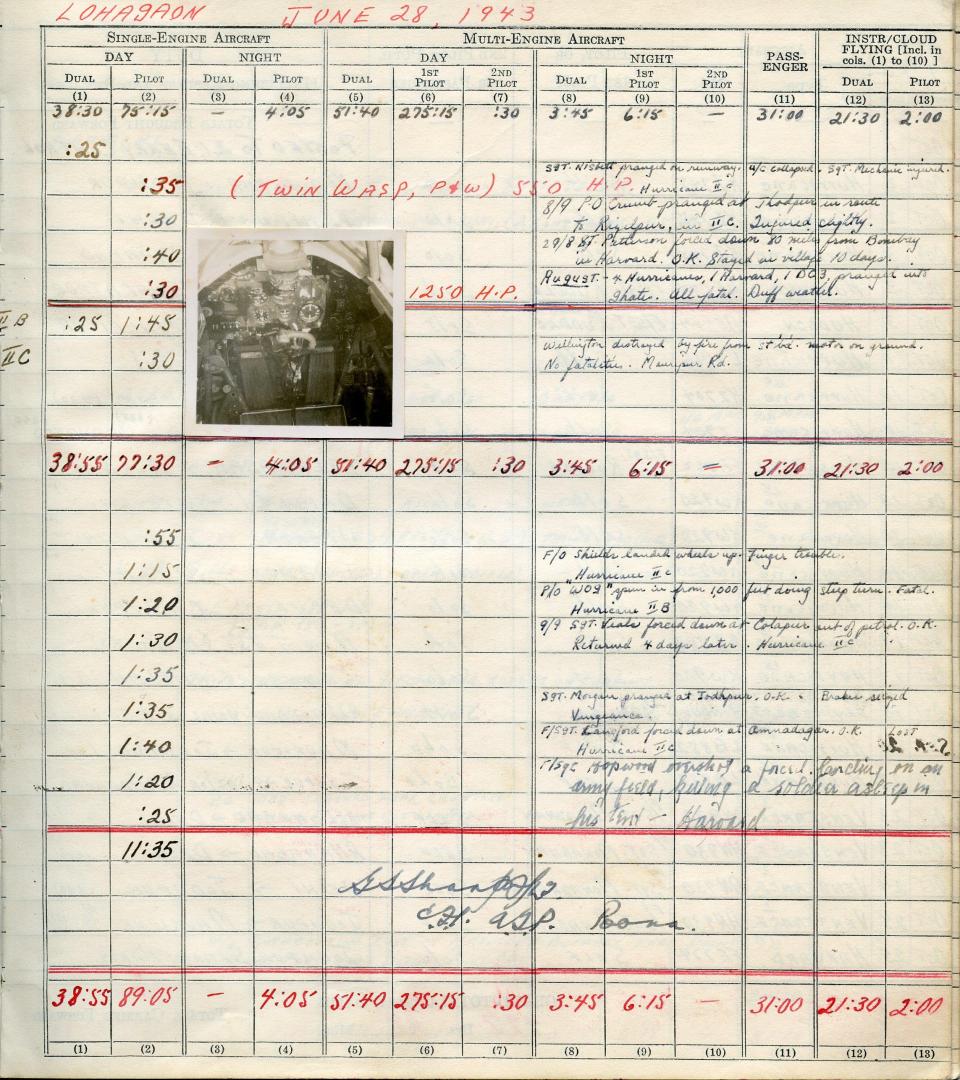 LOHAGAON JUNE 28, 1943
SINGLE-ENGINE AIRCRAFT MULTI-ENGINE AIRCRAFT PASS-ENGER INSTR/CLOUD FLYING [Incl. in cols. (1) to (10) ]
DAY NIGHT DAY NIGHT
DUAL PILOT DUAL PILOT DUAL 1ST PILOT 2ND PILOT DUAL 1ST PILOT 2ND PILOT DUAL PILOT
(1) (2) (3) (4) (5) (6) (7) (8) (9) (10) (11) (12) (13)
38:30 75:15 — 4:05 51:40 275:15 :30 3:45 6:15 — 31:00 21:30 2:00
:25
Sgt. Nisbett pranged on runway. u/c collapsed. Sgt. Mechanic injured.
:35 (TWIN WASP, P&W) 550 H.P. Hurricane II C
8/9 P.O Crumb pranged at Jhodpur in route
:30 to Risalpur, in II C. Injured slightly.
29/8 St. Patterson forced down 80 miles from Bombay
:40 in Harvard. O.K. Stayed in village 10 days.
August - 4 Hurricanes, 1 Harvard, 1 DC3, pranged into
:30 1250 H.P. Ghats. All fatal. Duff weather.
II B :25 1:45
Wellington destroyed by fire from st'bd. motor on ground.
II C :30 No fatalities. Mauripur Rd.
38:55 77:30 — 4:05 51:40 275:15 :30 3:45 6:15 = 31:00 21:30 2:00
:55
F/O Shields landed wheels up. Finger trouble.
1:15 Hurricane II C
P/O "WOG" spun in from 1,000 feet doing steep turn. Fatal.
1:20 Hurricane II B
9/9 Sgt. Veals forced down at Colapur out of petrol. O.K.
1:30 Returned 4 days later. Hurricane II C
1:35
Sgt. Morgan pranged at Jodhpur. O.K. Brakes seized
1:35 Vengeance.
F/Sgt. Langford forced down at Amnadagar. O.K. LOST
1:40 Hurricane II C
F/Sgt Hopwood overshot a forced landing on an
1:20 army field, killing a soldier asleep in
:25 his tent — Harvard
11:35
A.T.P. Poona.
38:55 89:05 — 4:05 51:40 275:15 :30 3:45 6:15 — 31:00 21:30 2:00
(1) (2) (3) (4) (5) (6) (7) (8) (9) (10) (11) (12) (13)